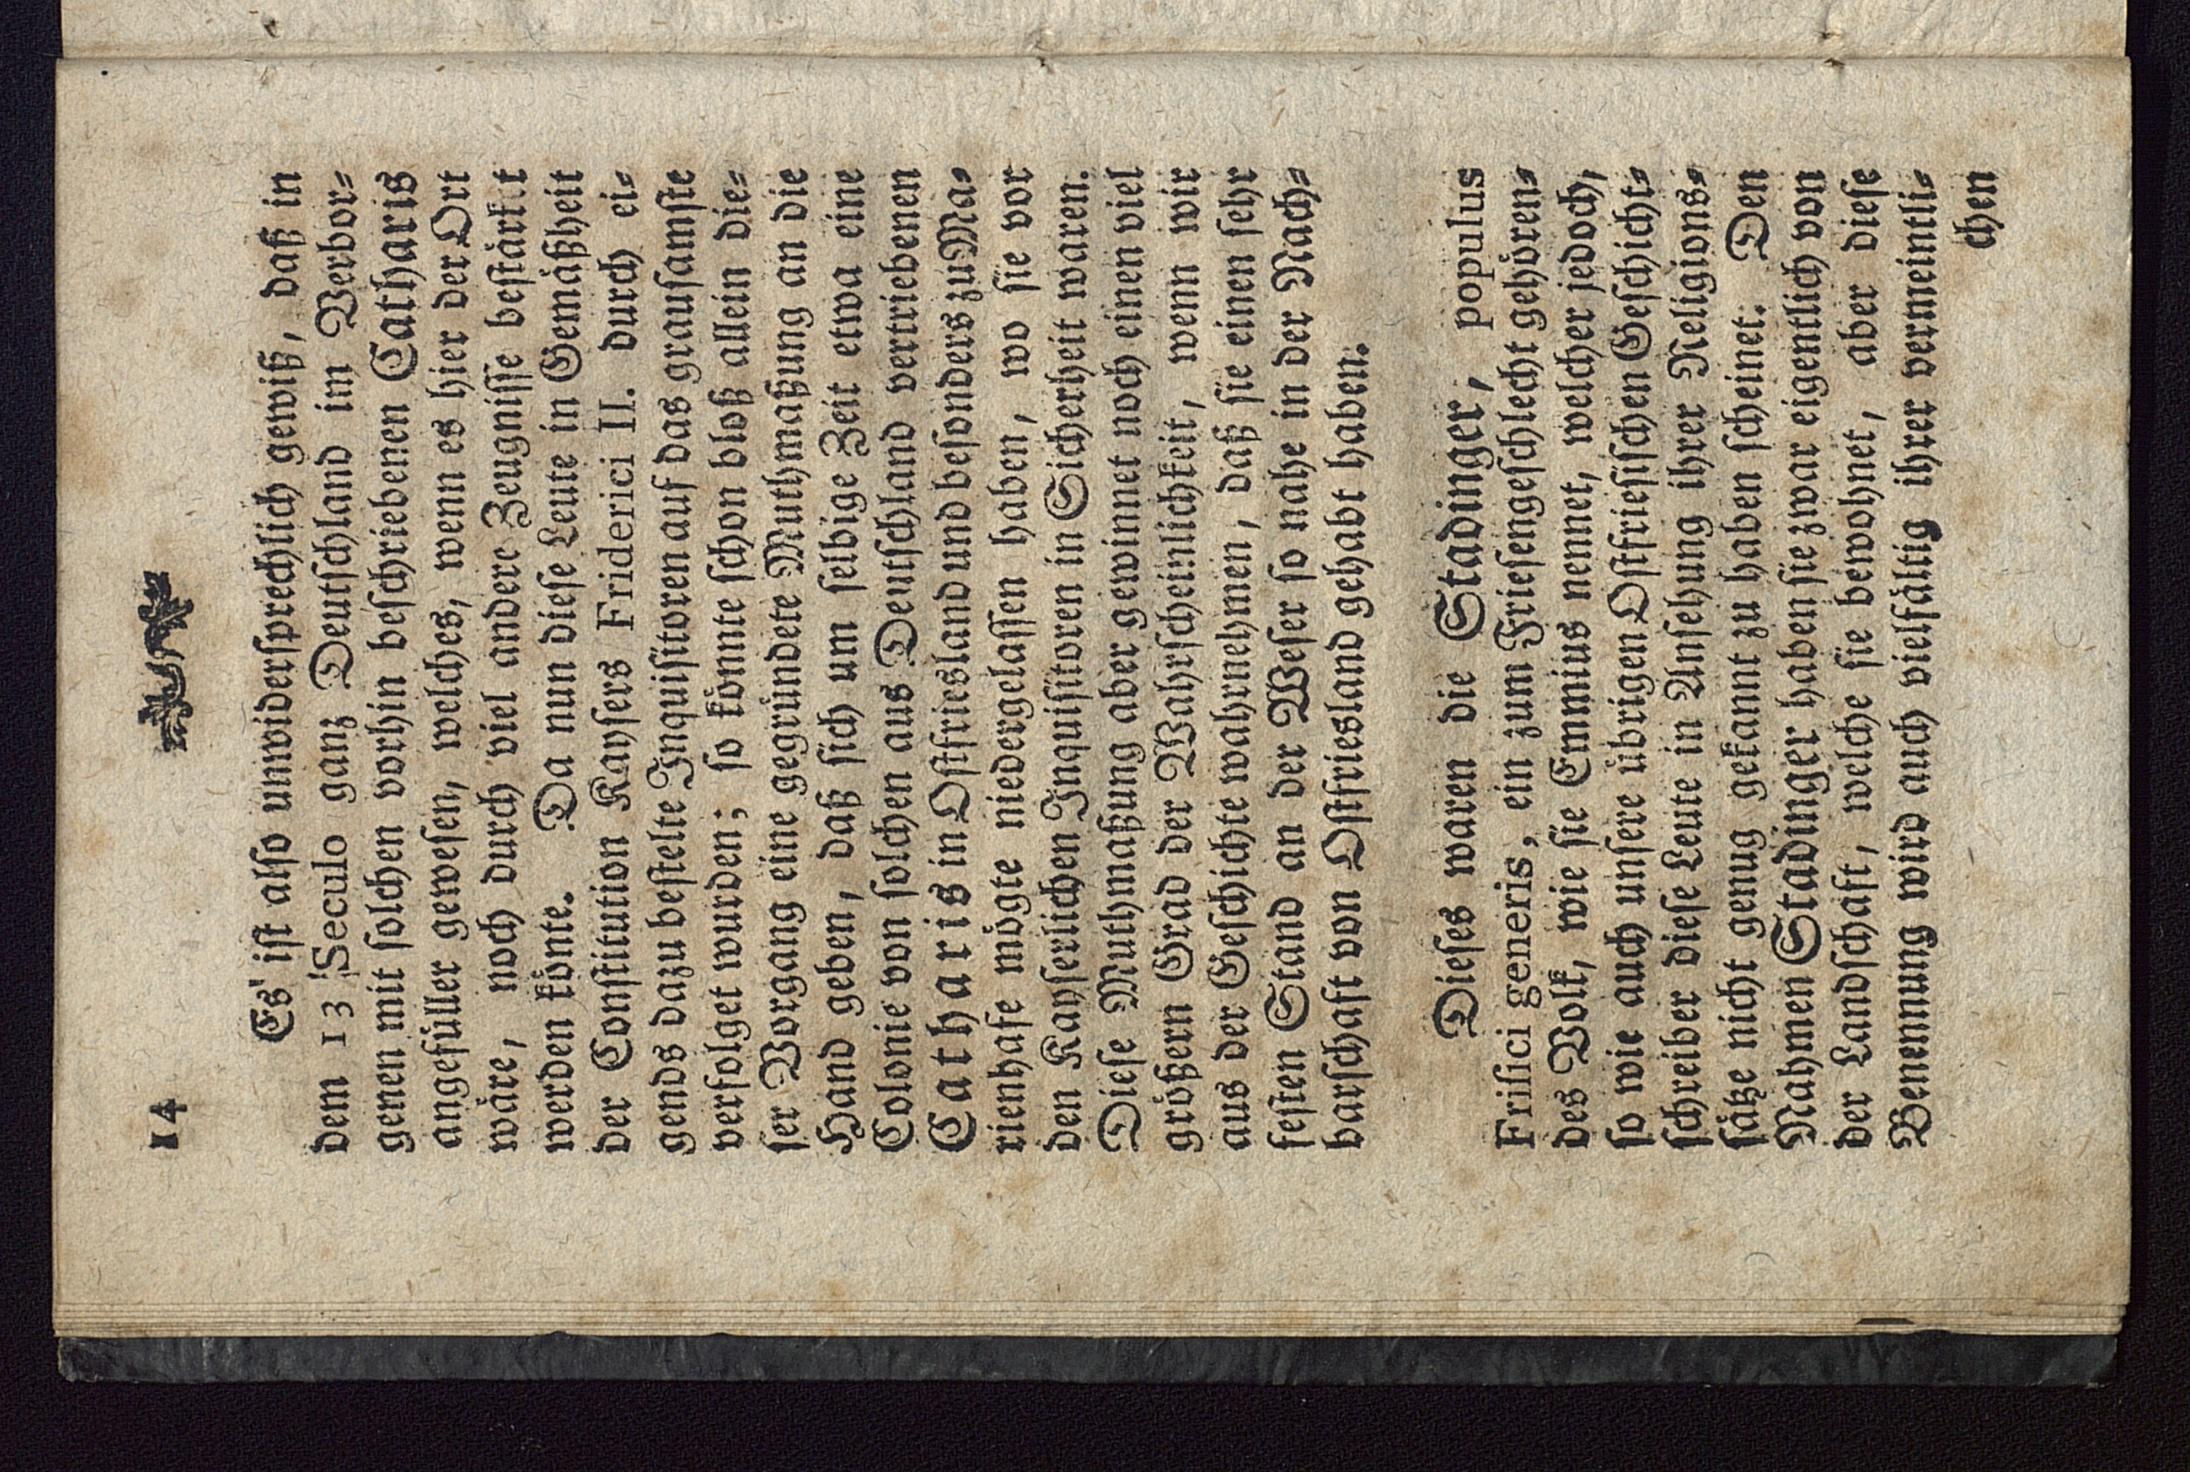 14
Es ist also unwidersprechlich gewiß, daß in
dem 13 Seculo ganz Deutschland im Verbor⸗
genen mit solchen vorhin beschriebenen Catharis
angefüller gewesen, welches, wenn es hier der Ort
wäre, noch durch viel andere Zeugnisse bestärkt
werden könte. Da nun diese Leute in Gemäßheit
der Constitution Kaysers Friderici II. durch ei⸗
gends dazu bestelte Inquisitoren auf das grausamste
verfolget wurden; so könnte schon bloß allein die⸗
ser Vorgang eine gegründete Muthmaßung an die
Hand geben, daß sich um selbige Zeit etwa eine
Colonie von solchen aus Deutschland vertriebenen
Catharis in Ostfriesland und besonders zu Ma⸗
rienhafe mögte niedergelassen haben, wo sie vor
den Kayserlichen Inquisitoren in Sicherheit waren.
Diese Muthmaßung aber gewinnet noch einen viel
größern Grad der Wahrscheinlichkeit, wenn wir
aus der Geschichte wahrnehmen, daß sie einen sehr
festen Stand an der Weser so nahe in der Nach⸗
barschaft von Ostfriesland gehabt haben.
Dieses waren die Stadinger, populus
Frisici generis, ein zum Friesengeschlecht gehören⸗
des Volk, wie sie Emmius nennet, welcher jedoch,
so wie auch unsere übrigen Ostfriesischen Geschicht⸗
schreiber diese Leute in Ansehung ihrer Religions⸗
sätze nicht genug gekannt zu haben scheinet. Den
Nahmen Stadinger haben sie zwar eigentlich von
der Landschaft, welche sie bewohnet, aber diese
Benennung wird auch vielfältig ihrer vermeintli⸗
chen